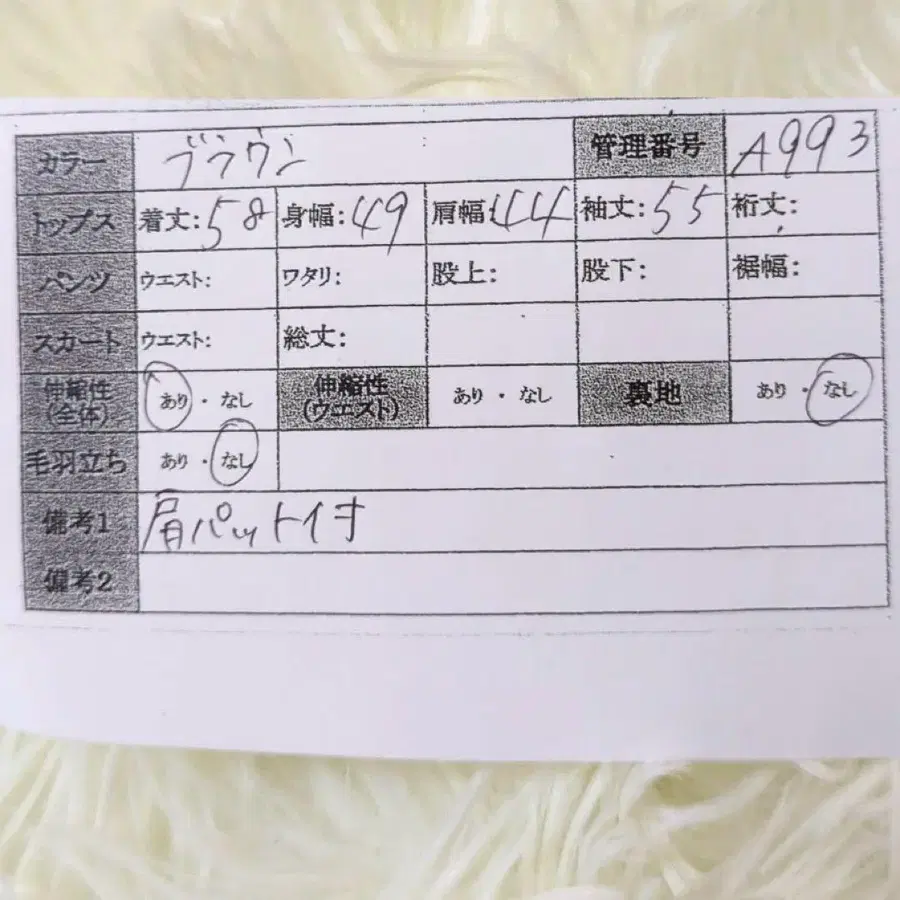 カラー ブラウン 管理番号 A993
トップス 着丈:58 身幅:49 肩幅:44 袖丈:55 裄丈:
パンツ ウエスト: ワタリ: 股上: 股下: 裾幅:
スカート ウエスト: 総丈:
伸縮性 あり・なし 伸縮性 あり・なし 裏地 あり・なし
(全体) (ウエスト)
毛羽立ち あり・なし
備考1 肩パット付
備考2